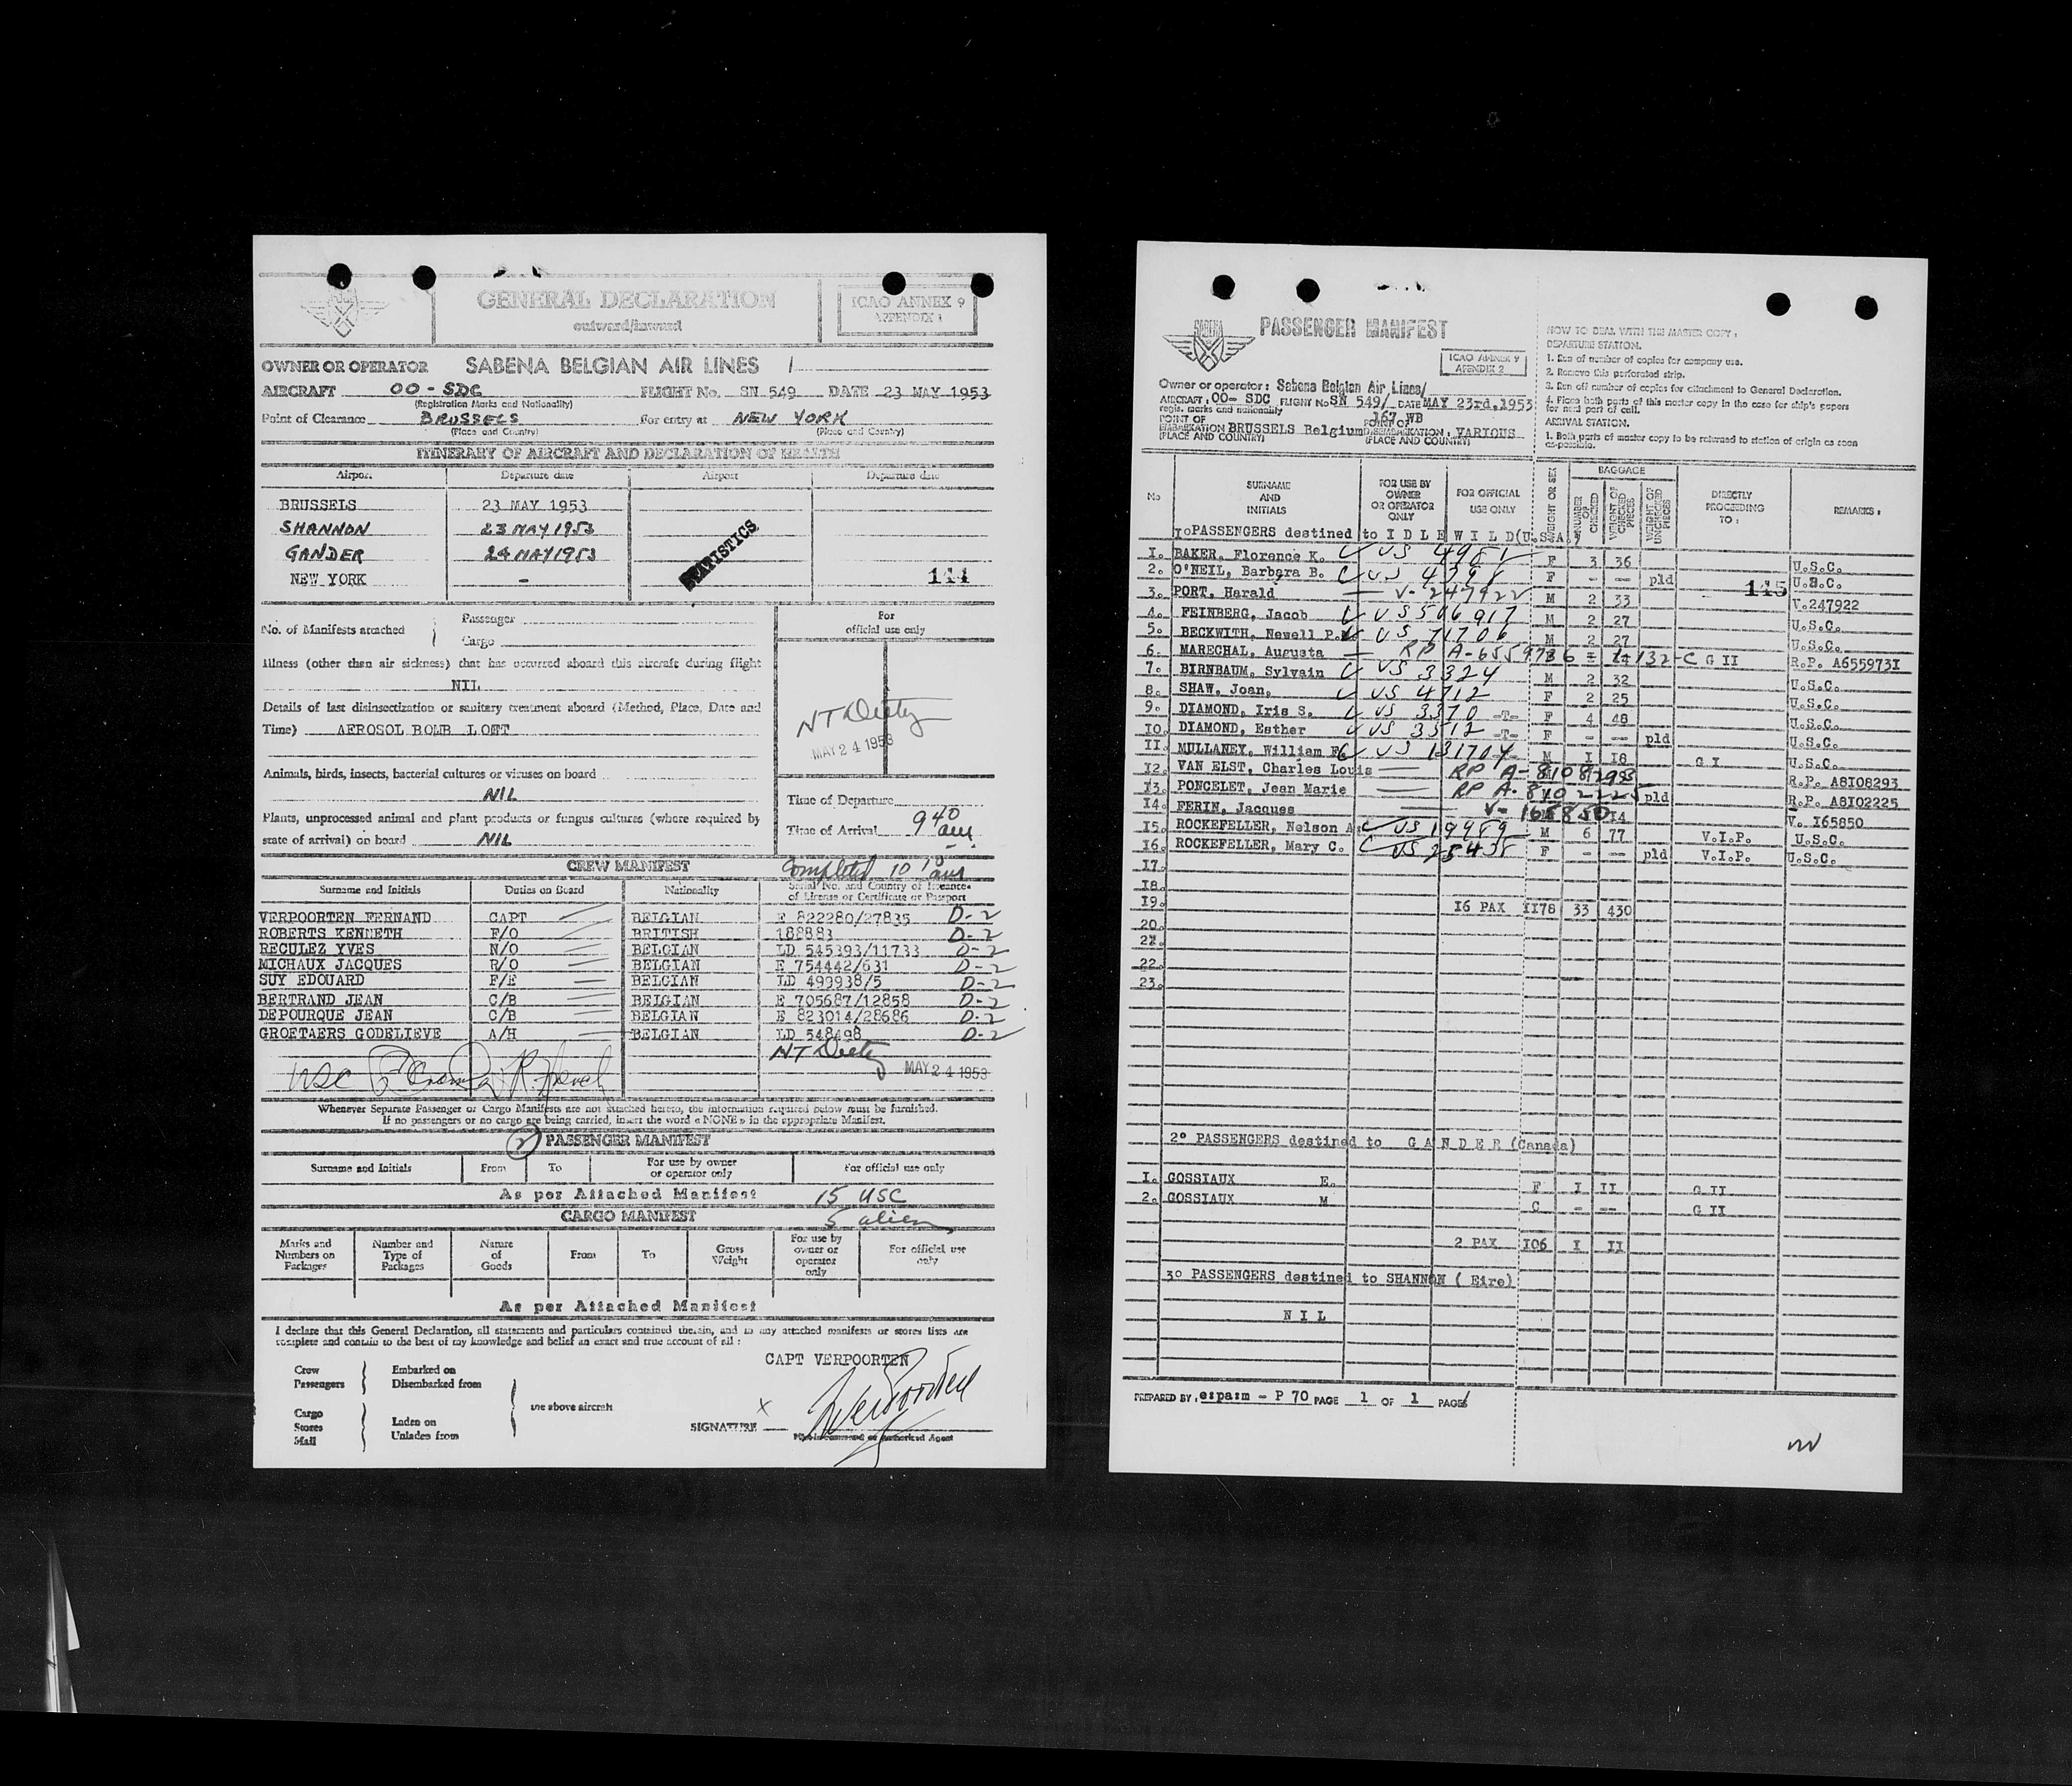 GENERAL DECLARATION
outward/inward
ICAO ANNEX 9
APPENDIX 1
OWNER OR OPERATOR SABENA BELGIAN AIR LINES /
AIRCRAFT OO - SDC FLIGHT No. SN 549 DATE 23 MAY 1953
(Registration Marks and Nationality)
Point of Clearance BRUSSELS For entry at NEW YORK
(Place and Country) (Place and Country)
ITINERARY OF AIRCRAFT AND DECLARATION OF HEALTH
Airport Departure date Airport Departure date
BRUSSELS 23 MAY 1953
SHANNON 23 MAY 1953
GANDER 24 MAY 1953
NEW YORK -
STATISTICS
144
No. of Manifests attached
Passenger
Cargo
For
official use only
Illness (other than air sickness) that has occurred aboard this aircraft during flight
NIL
Details of last disinsectization or sanitary treatment aboard (Method, Place, Date and
Time) AEROSOL BOMB
MAY 24 1953
Animals, birds, insects, bacterial cultures or viruses on board
NIL
Plants, unprocessed animal and plant products or fungus cultures (where required by
state of arrival) on board NIL
Time of Departure
Time of Arrival 9 40 am
CREW MANIFEST
Completed 10 10 am
Surname and Initials Duties on Board Nationality Serial No. and Country of Issuance
of License or Certificate or Passport
VERPOORTEN FERNAND CAPT BELGIAN E 822280/27835 D-2
ROBERTS KENNETH F/O BRITISH 188883 D-2
RECULEZ YVES N/O BELGIAN LD 545393/11733 D-2
MICHAUX JACQUES R/O BELGIAN E 754442/631 D-2
SUY EDOUARD F/E BELGIAN LD 499938/5 D-2
BERTRAND JEAN C/B BELGIAN E 705687/12858 D-2
DEPOURQUE JEAN C/B BELGIAN E 823014/28686 D-2
GROETAERS GODELIEVE A/H BELGIAN LD 548498 D-2
MAY 24 1953
Whenever Separate Passenger or Cargo Manifests are not attached hereto, the information required below must be furnished.
If no passengers or no cargo are being carried, insert the word « NONE » in the appropriate Manifest.
2 PASSENGER MANIFEST
Surname and Initials From To For use by owner
or operator only For official use only
As per Attached Manifest 15 USC
CARGO MANIFEST 5 alien
Marks and
Numbers on
Packages
Number and
Type of
Packages
Nature
of
Goods
From
To
Gross
Weight
For use by
owner or
operator
only
For official use
only
As per Attached Manifest
I declare that this General Declaration, all statements and particulars contained therein, and in any attached manifests or stores lists are
complete and contain to the best of my knowledge and belief an exact and true account of all :
CAPT VERPOORTEN
Crew
Passengers
Embarked on
Disembarked from
the above aircraft
Cargo
Stores
Mail
Laden on
Unladen from
x
SIGNATURE
Pilot in Command or Authorized Agent
SABENA
PASSENGER MANIFEST
ICAO ANNEX 9
APENDIX 2
Owner or operator : Sabena Belgian Air Lines/
AIRCRAFT : OO- SDC FLIGHT No SN 549/ DATE MAY 23rd, 1953
regis. marks and nationality 167 WB
POINT OF
EMBARKATION BRUSSELS Belgium
(PLACE AND COUNTRY)
POINT OF
DISEMBARKATION : VARIOUS
(PLACE AND COUNTRY)
HOW TO DEAL WITH THIS MASTER COPY :
DEPARTURE STATION.
1. Run of number of copies for company use.
2. Remove this perforated strip.
3. Run off number of copies for attachment to General Declaration.
4. Place both parts of this master copy in the case for ship's papers
for next port of call.
ARRIVAL STATION.
1. Both parts of master copy to be returned to station of origin as soon
as possible.
No
SURNAME
AND
INITIALS
FOR USE BY
OWNER
OR OPERATOR
ONLY
FOR OFFICIAL
USE ONLY
WEIGHT OR SEX
BAGGAGE
NUMBER
OF
CHECKED
WEIGHT OF
CHECKED
PIECES
WEIGHT OF
UNCHECKED
PIECES
DIRECTLY
PROCEEDING
TO :
REMARKS :
1o PASSENGERS destined to I D L E W I L D (U.S.A.)
1. BAKER, Florence K. US 4981 F 3 36 U.S.C.
2. O'NEIL, Barbara B. US F - -- pld U.S.C.
145
3. PORT, Harald V-247922 M 2 33 V.247922
4. FEINBERG, Jacob US 506917 M 2 27 U.S.C.
5. BECKWITH, Newell P. US 71706 M 2 27 U.S.C.
6. MARECHAL, Augusta RP G II R.P. A6559731
7. BIRNBAUM, Sylvain US 3324 M 2 32 U.S.C.
8. SHAW, Joan, US 4712 F 2 25 U.S.C.
9. DIAMOND, Iris S. US 3370 -T- F 4 48 U.S.C.
10. DIAMOND, Esther US 3512 -T- F - -- pld U.S.C.
11. MULLANEY, William F. US 131704 M 1 18 G I U.S.C.
12. VAN ELST, Charles Louis RP A-8108293 R.P. A8108293
13. PONCELET, Jean Marie RP A-8102225 pld R.P. A8102225
14. FERIN, Jacques V-165850 14 V. 165850
15. ROCKEFELLER, Nelson A. US 19989 M 6 77 V.I.P. U.S.C.
16. ROCKEFELLER, Mary C. US 25435 F - -- pld V.I.P. U.S.C.
17.
18.
19. 16 PAX 1178 33 430
20.
21.
22.
23.
2o PASSENGERS destined to G A N D E R (Canada)
1. GOSSIAUX E. F 1 11 G II
2. GOSSIAUX M C - -- G II
2 PAX 106 1 11
3o PASSENGERS destined to SHANNON ( Eire)
N I L
PREPARED BY : e:pa:m - P 70 PAGE 1 OF 1 PAGE